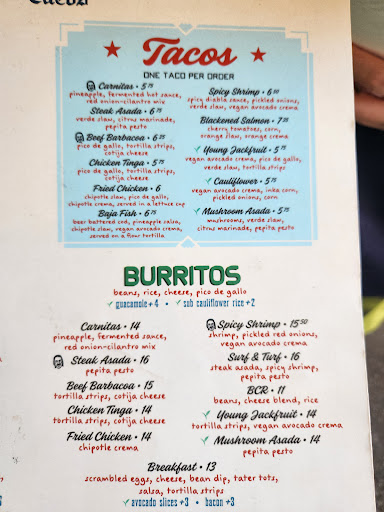 Tacos
ONE TACO PER ORDER
Carnitas • 5 75
pineapple, fermented hot sauce,
red onion-cilantro mix
Steak Asada • 6
verde slaw, citrus marinade,
pepita pesto
Beef Barbacoa • 6 25
pico de gallo, tortilla strips,
cotija cheese
Chicken Tinga • 5 75
pico de gallo, tortilla strips,
cotija cheese
Fried Chicken • 6
chipotle slaw, pico de gallo,
chipotle crema, served in a lettuce cup
Baja Fish • 6 75
beer battered cod, pineapple salsa,
chipotle slaw, vegan avocado crema,
served on a flour tortilla
Spicy Shrimp • 6 50
spicy diabla sauce, pickled onions,
verde slaw, vegan avocado crema
Blackened Salmon • 7 25
cherry tomatoes, corn,
orange slaw, orange crema
Young Jackfruit • 5 75
vegan avocado crema, pico de gallo,
verde slaw, tortilla strips
Cauliflower • 5 75
vegan avocado crema, inka corn,
pickled onions, corn
Mushroom Asada • 5 75
mushrooms, verde slaw,
citrus marinade, pepita pesto
BURRITOS
beans, rice, cheese, pico de gallo
guacamole +4 • sub cauliflower rice +2
Carnitas • 14
pineapple, fermented sauce,
red onion-cilantro mix
Steak Asada • 16
pepita pesto
Beef Barbacoa • 15
tortilla strips, cotija cheese
Chicken Tinga • 14
tortilla strips, cotija cheese
Fried Chicken • 14
chipotle crema
Spicy Shrimp • 15 50
shrimp, pickled red onions,
vegan avocado crema
Surf & Turf • 16
steak asada, spicy shrimp,
pepita pesto
BCR • 11
beans, cheese blend, rice
Young Jackfruit • 14
tortilla strips, vegan avocado crema
Mushroom Asada • 14
pepita pesto
Breakfast • 13
scrambled eggs, cheese, bean dip, tater tots,
salsa, tortilla strips
avocado slices +3 • bacon +3